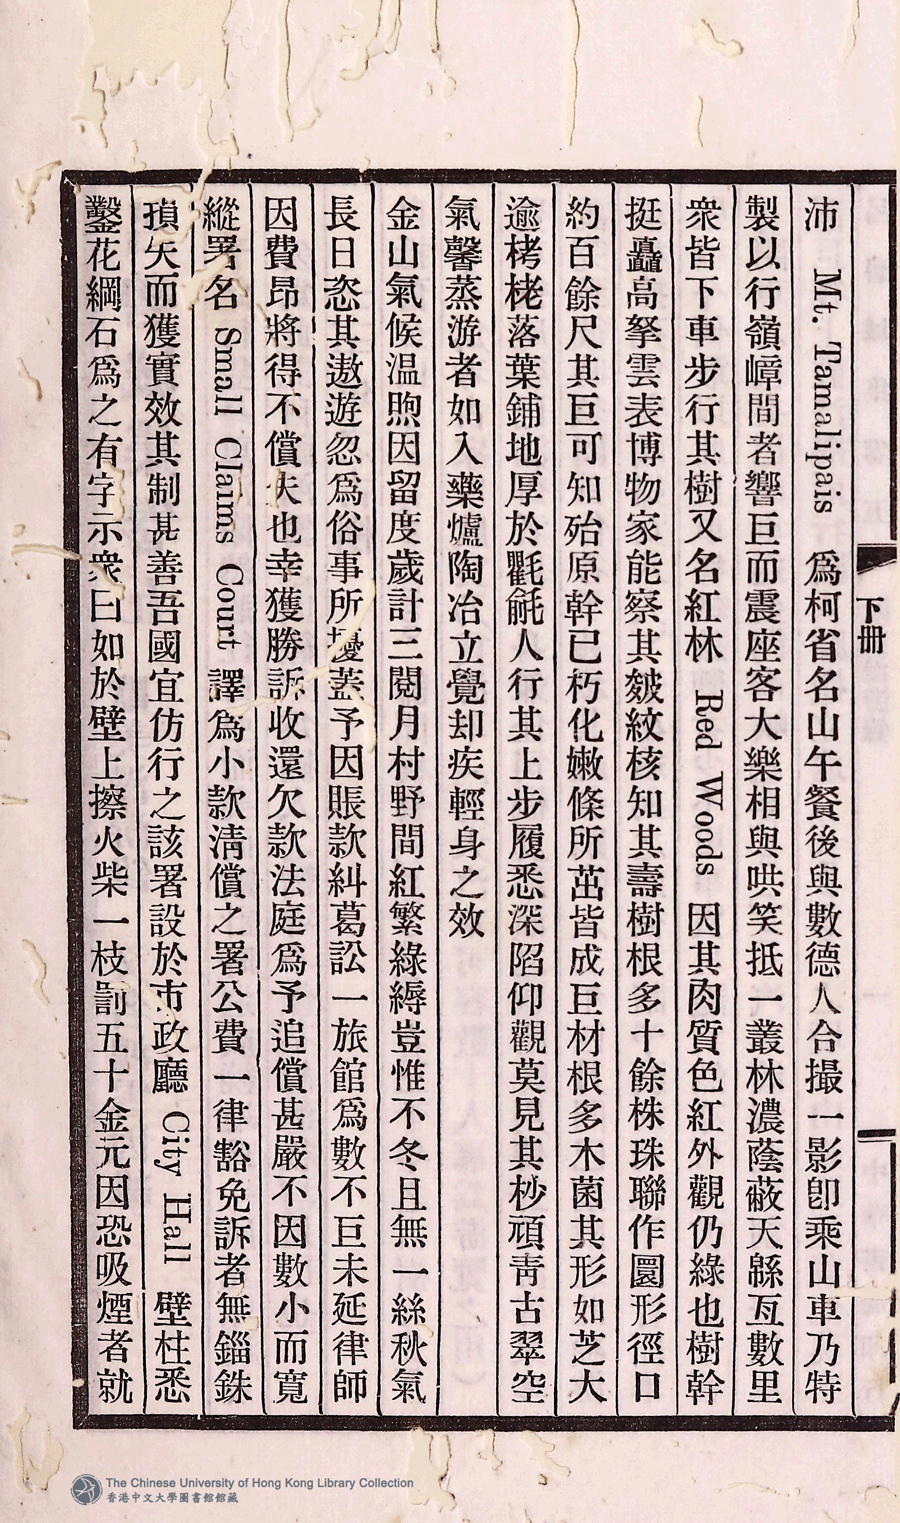 沛 Mt. Tamalipais 爲柯省名山午餐後與數德人合撮一影卽乘山車乃特
製以行嶺嶂間者響巨而震座客大樂相與哄笑抵一叢林濃蔭蔽天緜亙數里
衆皆下車步行其樹又名紅林 Red Woods 因其肉質色紅外觀仍綠也樹幹
挺矗高拏雲表博物家能察其皴紋核知其壽樹根多十餘株珠聯作圜形徑口
約百餘尺其巨可知殆原幹已朽化嫩條所茁皆成巨材根多木菌其形如芝大
逾栲栳落葉鋪地厚於氍毹人行其上步履悉深陷仰觀莫見其杪頑靑古翠空
氣馨蒸游者如入藥爐陶冶立覺却疾輕身之效
金山氣候温煦因留度歲計三閱月村野間紅繁綠縟豈惟不冬且無一絲秋氣
長日恣其遨遊忽爲俗事所擾蓋予因賬款糾葛訟一旅館爲數不巨未延律師
因費昂將得不償失也幸獲勝訴收還欠款法庭爲予追償甚嚴不因數小而寬
縱署名 Small Claims Court 譯爲小款淸償之署公費一律豁免訴者無錙銖
損失而獲實效其制甚善吾國宜仿行之該署設於市政廳 City Hall 壁柱悉
鑿花綱石爲之有字示衆曰如於壁上擦火柴一枝罰五十金元因恐吸煙者就
下册
The Chinese University of Hong Kong Library Collection
香港中文大學圖書館館藏